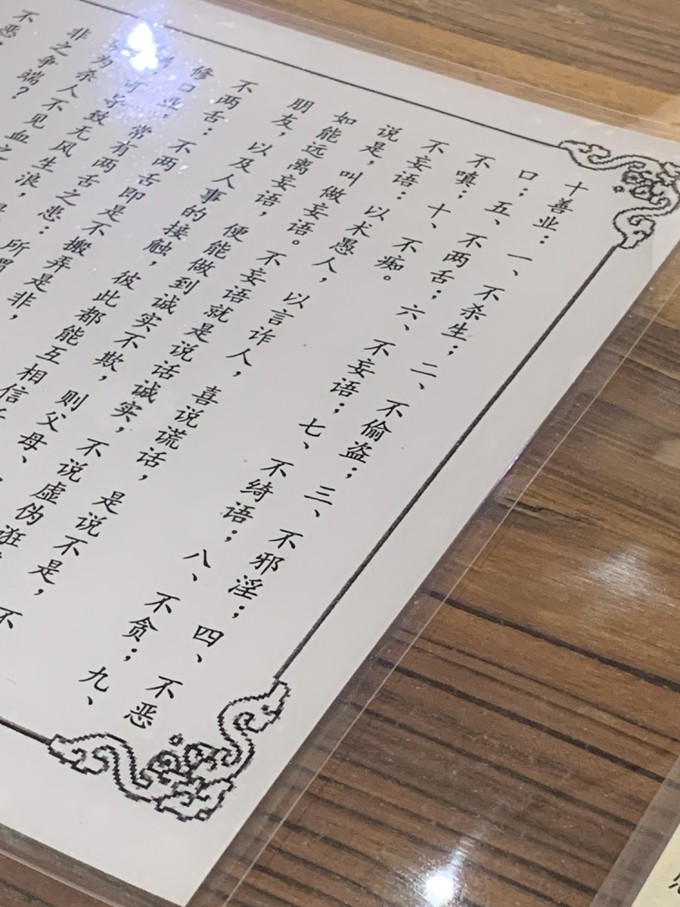 十善业：一、不杀生；二、不偷盗；三、不邪淫；四、不恶
口；五、不两舌；六、不妄语；七、不绮语；八、不贪；九、
不嗔；十、不痴。
不妄语：以术愚人，以言诈人，喜说谎话，是说不是，不
说是，叫做妄语。不妄语就是说话诚实，不说虚伪诳
如能远离妄语，便能做到诚实不欺，则父母、
朋友，以及人事的接触，彼此都能互相信
不两舌：不两舌即是不搬弄是非，
修口业，常有两舌之恶：所谓
可导致无风生浪，
为杀人不见血之
非之争端？
不恶